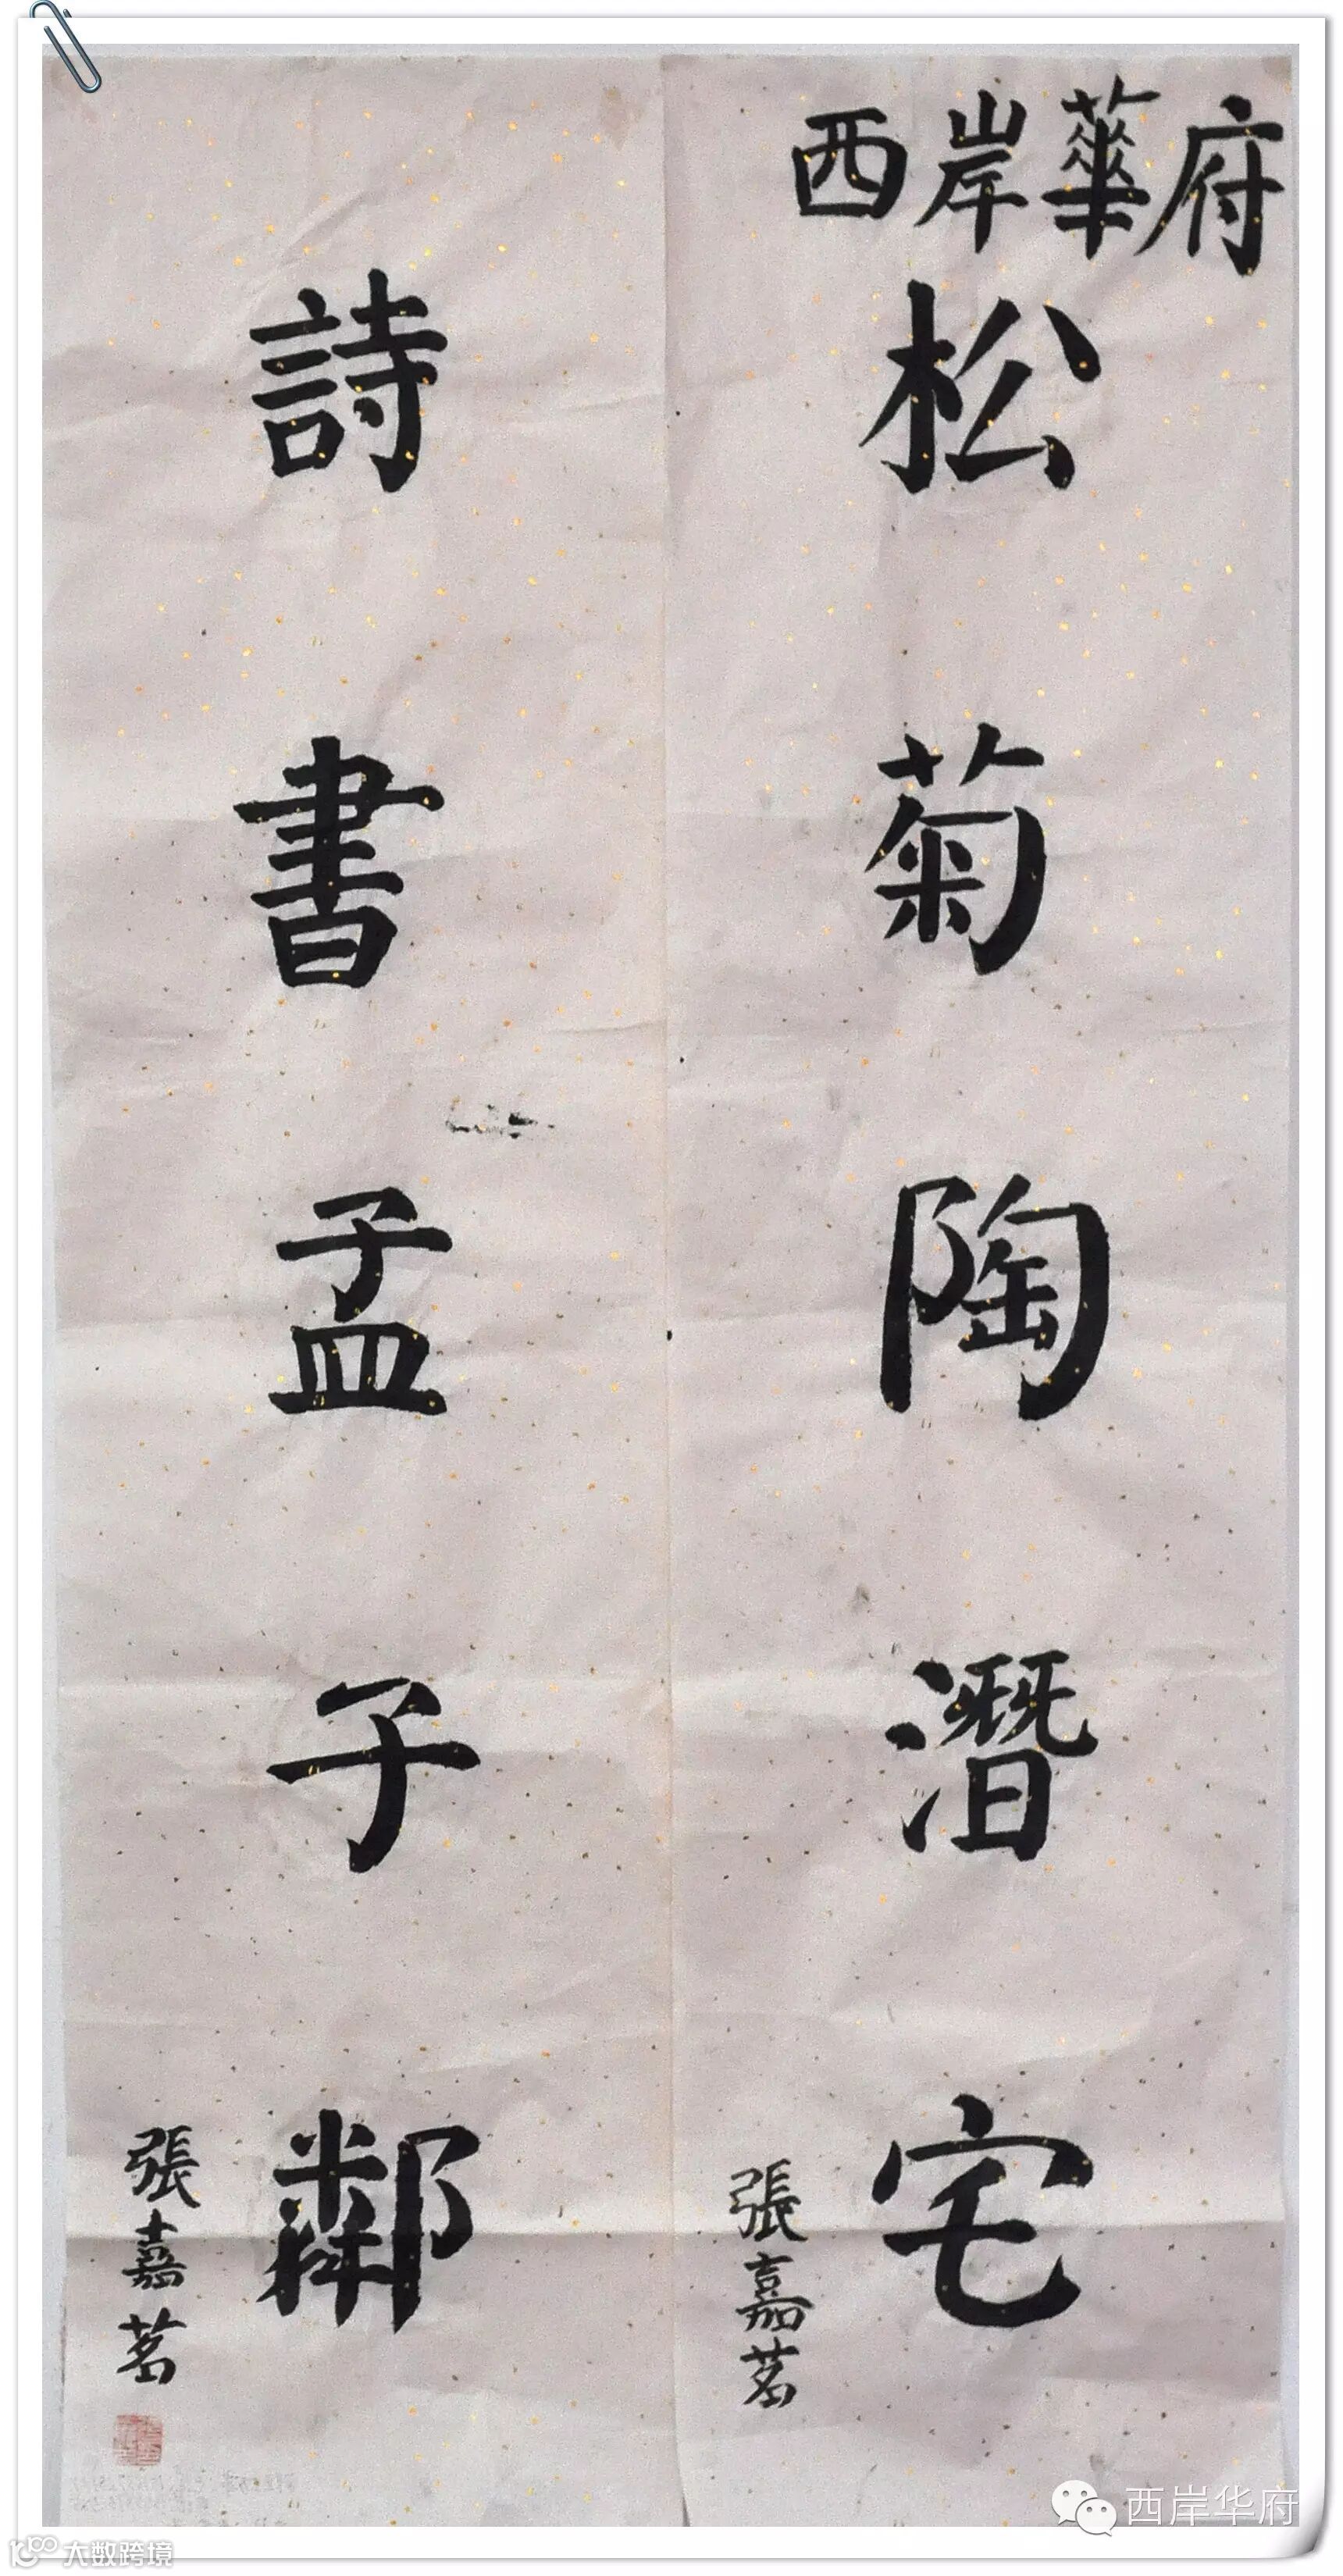 西岸華府
松菊陶潛宅
張嘉茗
詩書孟子鄰
張嘉茗
西岸华府
大数跨境